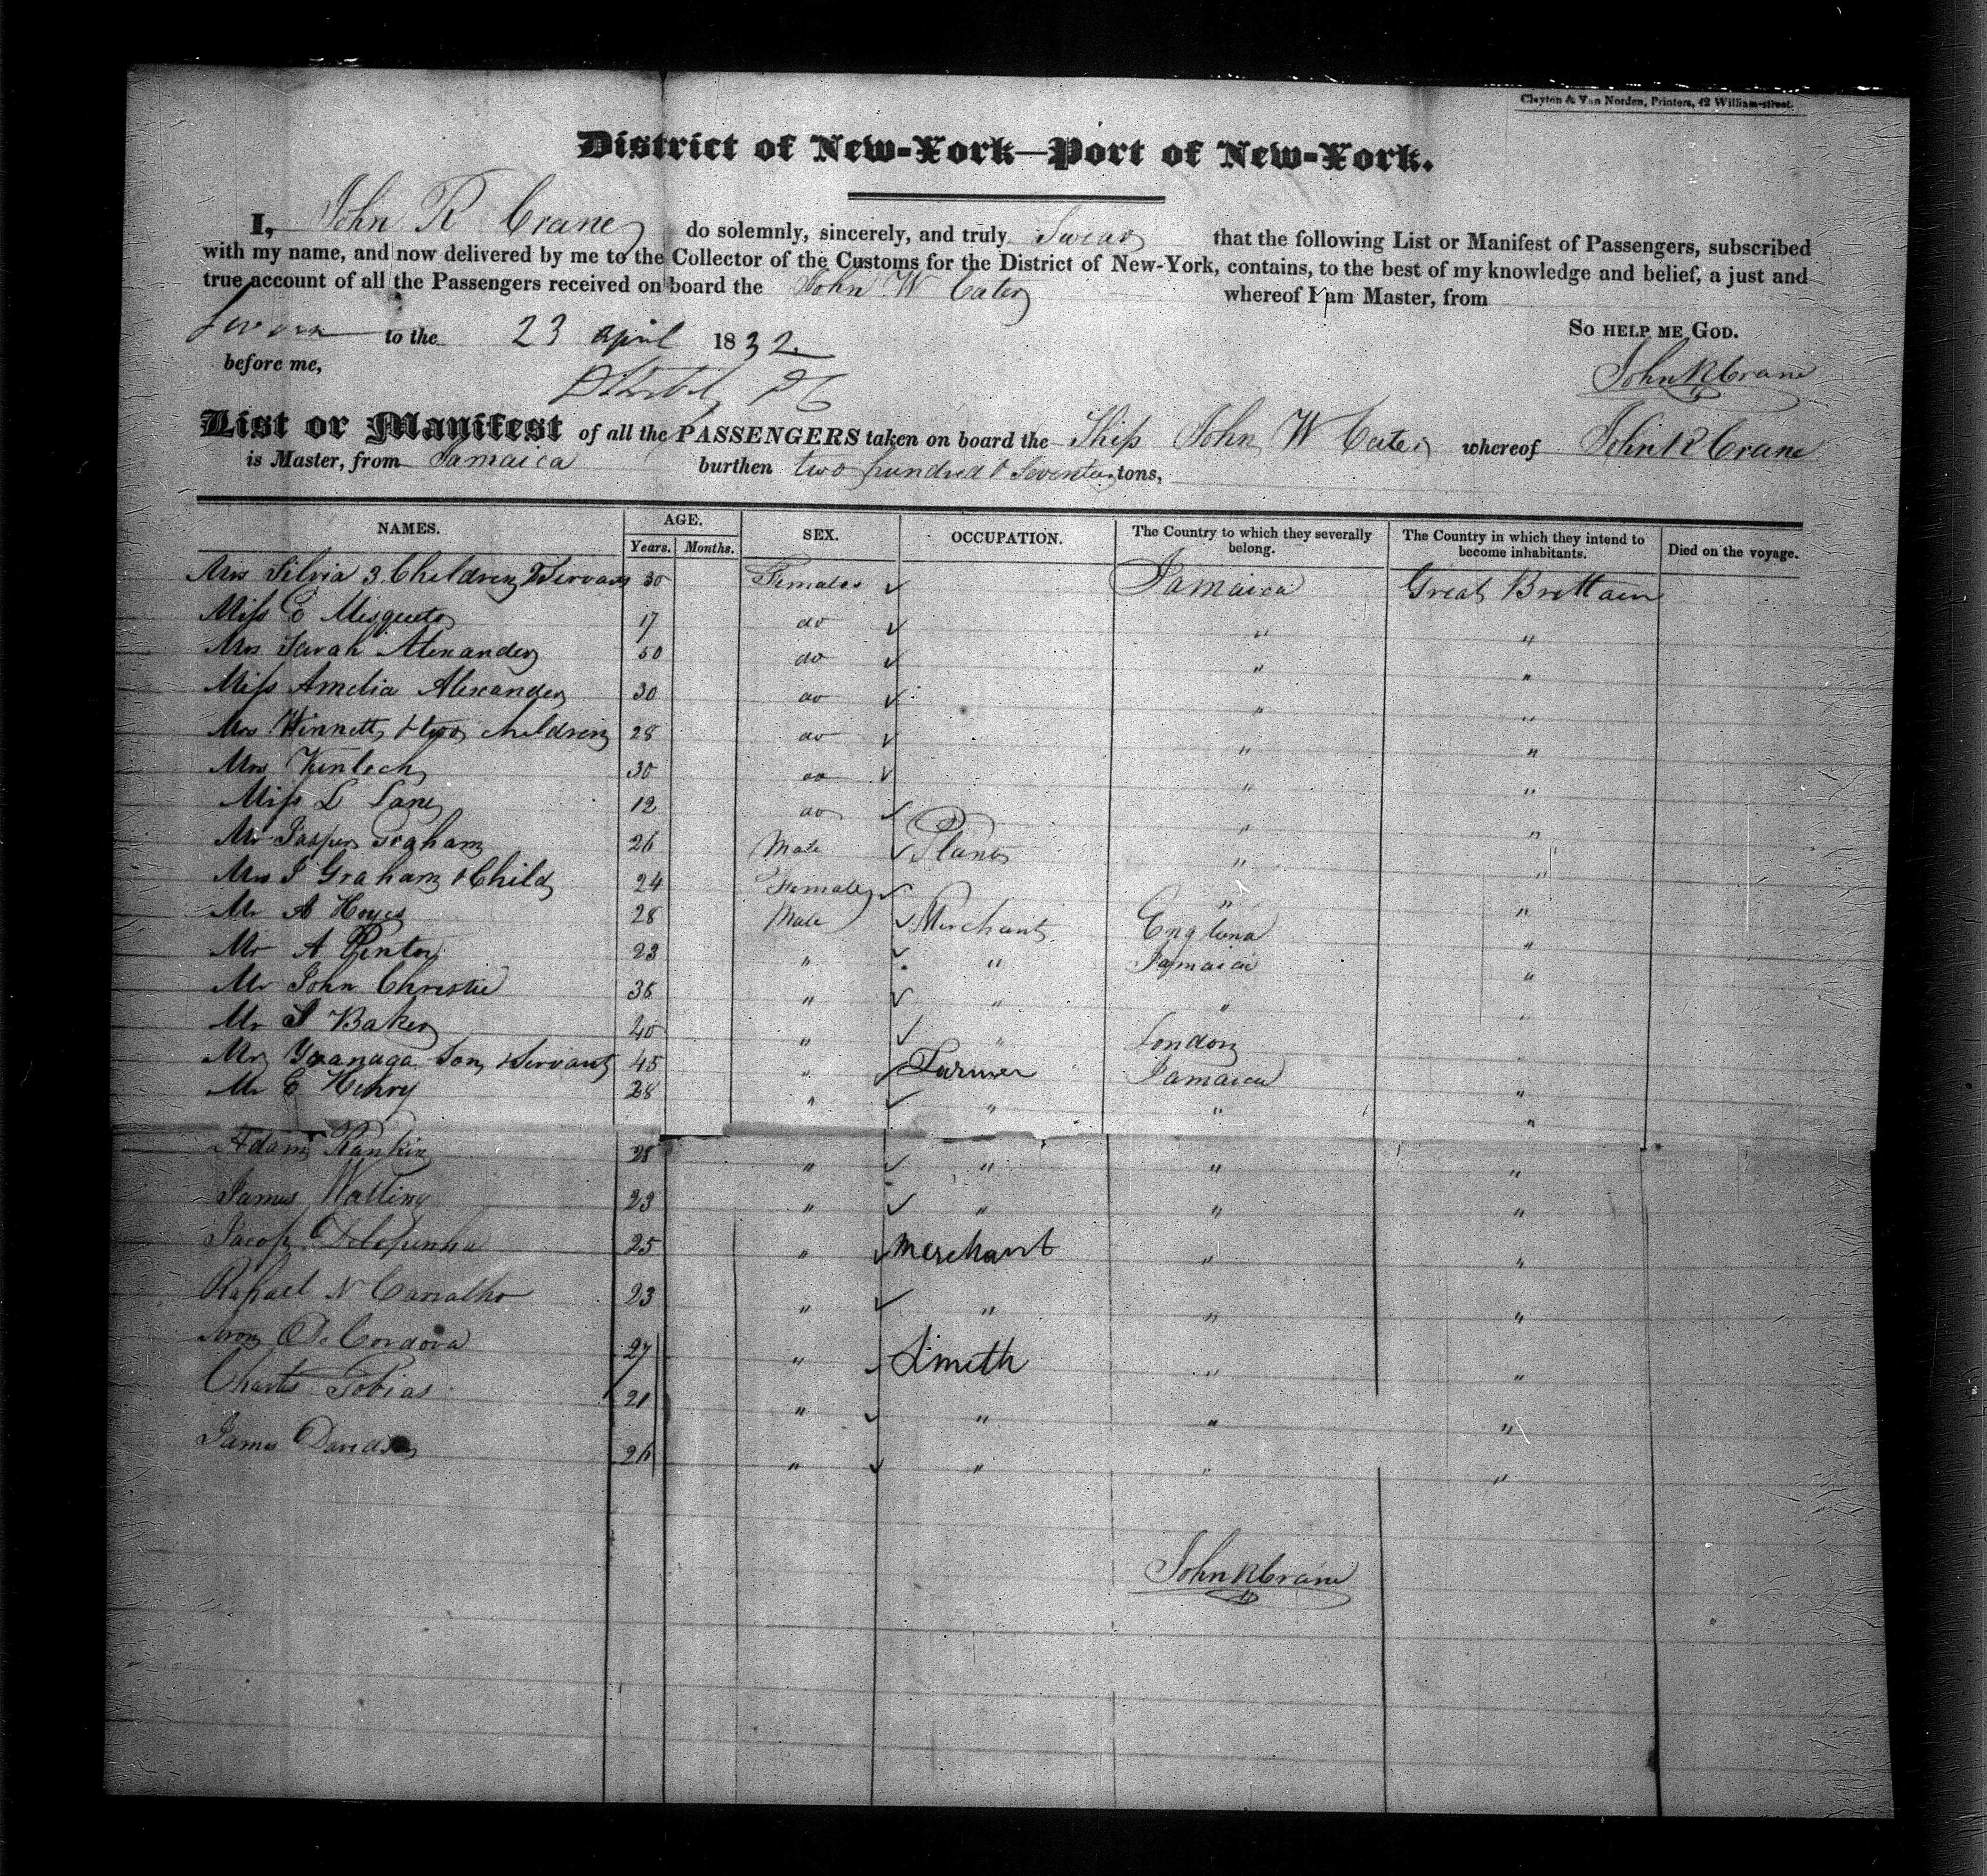 Clayton & Van Norden, Printers, 42 William-street.
District of New-York—Port of New-York.
I, John R Crane do solemnly, sincerely, and truly Swear that the following List or Manifest of Passengers, subscribed
with my name, and now delivered by me to the Collector of the Customs for the District of New-York, contains, to the best of my knowledge and belief, a just and
true account of all the Passengers received on board the John W Cater whereof I am Master, from
Sworn to the 23 april 1832 So help me God.
before me, John R Crane
List or Manifest of all the PASSENGERS taken on board the Ship John W Cater whereof John R Crane
is Master, from Jamaica burthen two hundred & Seventeen tons,
NAMES. AGE. SEX. OCCUPATION. The Country to which they severally belong. The Country in which they intend to become inhabitants. Died on the voyage.
Years. Months.
Mrs Silvia 3 Children 2 Servants 30 Females ✓ Jamaica Great Brittain
Miss E Mesqueto 17 do ✓ " "
Mrs Sarah Alexander 50 do ✓ " "
Miss Amelia Alexander 30 do ✓ " "
Mrs Winnett & two children 28 do ✓ " "
Mrs Kinloch 30 do ✓ " "
Miss L Lane 12 do ✓ " "
Mr Jasper Graham 26 Male ✓ " "
Mrs J Graham & Child 24 Female ✓ " "
Mr A Hoyes 28 Male ✓ Merchant England "
Mr A Pinto 23 " ✓ " Jamaica "
Mr John Christie 38 " ✓ " " "
Mr S Baker 40 " ✓ " London "
Mr Son & Servant 45 " ✓ Farmer Jamaica "
Mr E Henry 28 " ✓ " " "
Adam Rankin 28 " ✓ " " "
James Watling 23 " ✓ " " "
Jacob Delapenha 25 " ✓ merchant " "
Rafael N Carvalho 23 " ✓ " " "
Aron De Cordova 27 " ✓ Smith " "
Charles Tobias 21 " ✓ " " "
James Davidson 26 " ✓ " " "
John R Crane